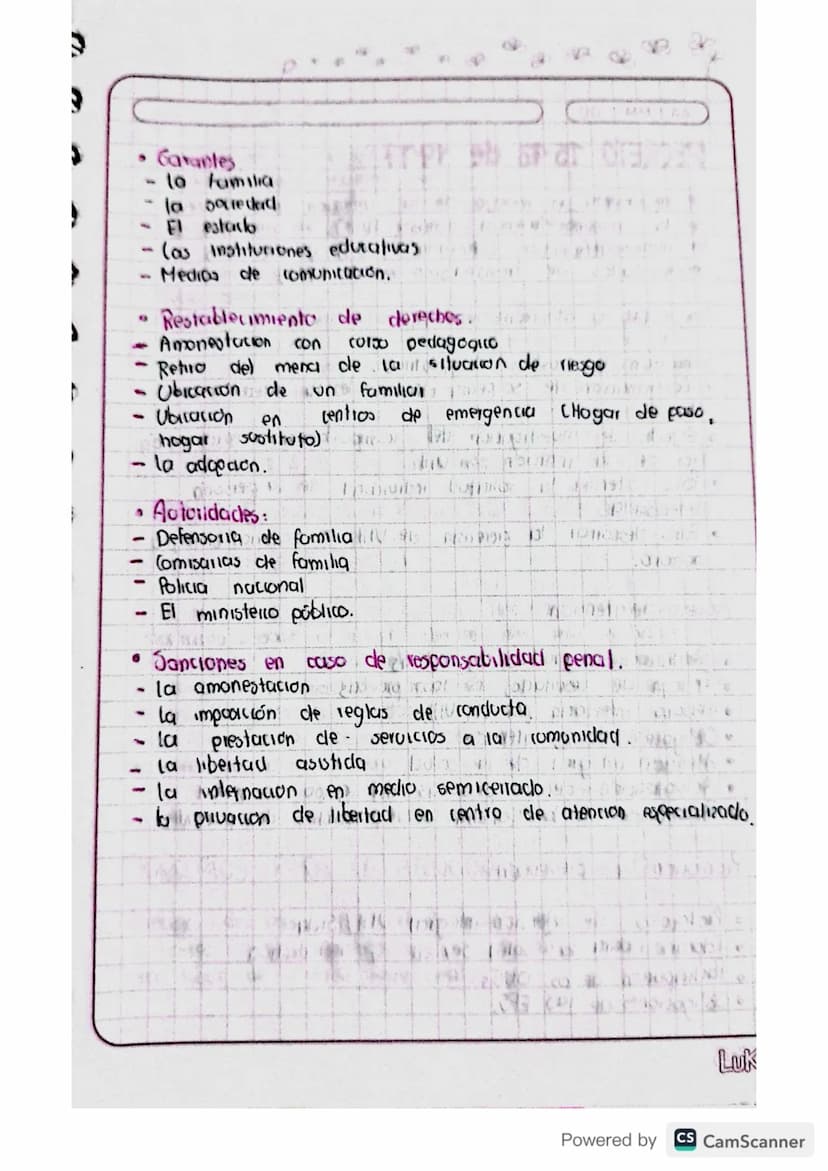 • Garantes
- la familia
- la sociedad
- El estado
- Las instituciones educativas
- Medios de comunicación.
• Restablecimiento de derechos.
- Amonestacion con curso pedagogico
- Retiro del menor de la situacion de riesgo
- Ubicación de un familiar
- Ubicación en centros de emergencia (Hogar de paso,
hogar sustituto)
- la adopcion.
• Autoridades:
- Defensoria de familia
- Comisarias de familia
- Policia nacional
- El ministerio público.
• Sanciones en caso de responsabilidad penal.
- la amonestacion
- La imposición de reglas de conducta
- la prestación de servicios a la comunidad.
- la libertad asistida
- la internacion en medio semicerrado.
- la privacion de libertad en centro de atencion especializado.
LUK
Powered by CS CamScanner